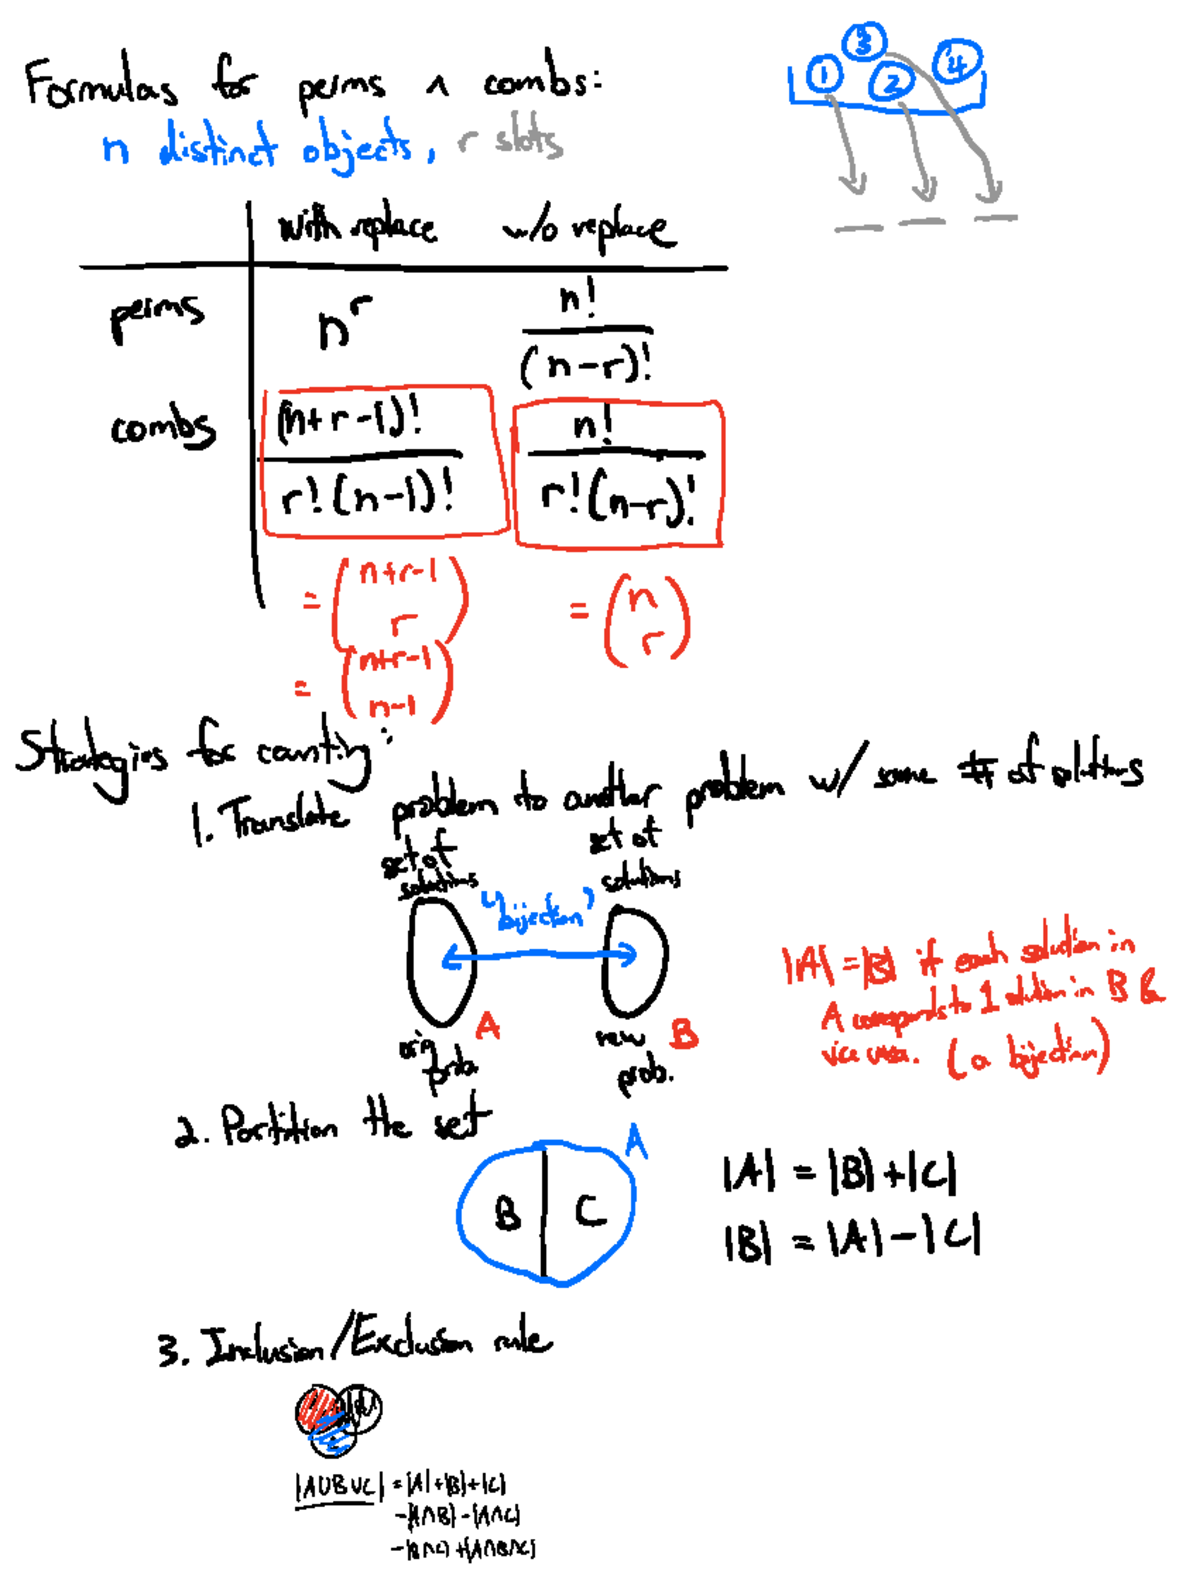 Formulas for perms ∧ combs:
n distinct objects, r slots
1 3 2 4
with replace w/o replace
perms n^r n!/(n-r)!
combs (n+r-1)!/r!(n-1)! n!/r!(n-r)!
= (n+r-1 r) = (n r)
= (n+r-1 n-1)
Strategies for counting:
1. Translate problem to another problem w/ same # of solutions
set of solutions
set of solutions
"bijection"
A
B
orig prob.
new prob.
|A| = |B| if each solution in
A corresponds to 1 solution in B &
vice versa. (a bijection)
2. Partition the set
A
B C
|A| = |B| + |C|
|B| = |A| - |C|
3. Inclusion/Exclusion rule
|A∪B∪C| = |A|+|B|+|C|
-|A∩B| - |A∩C|
-|B∩C| + |A∩B∩C|